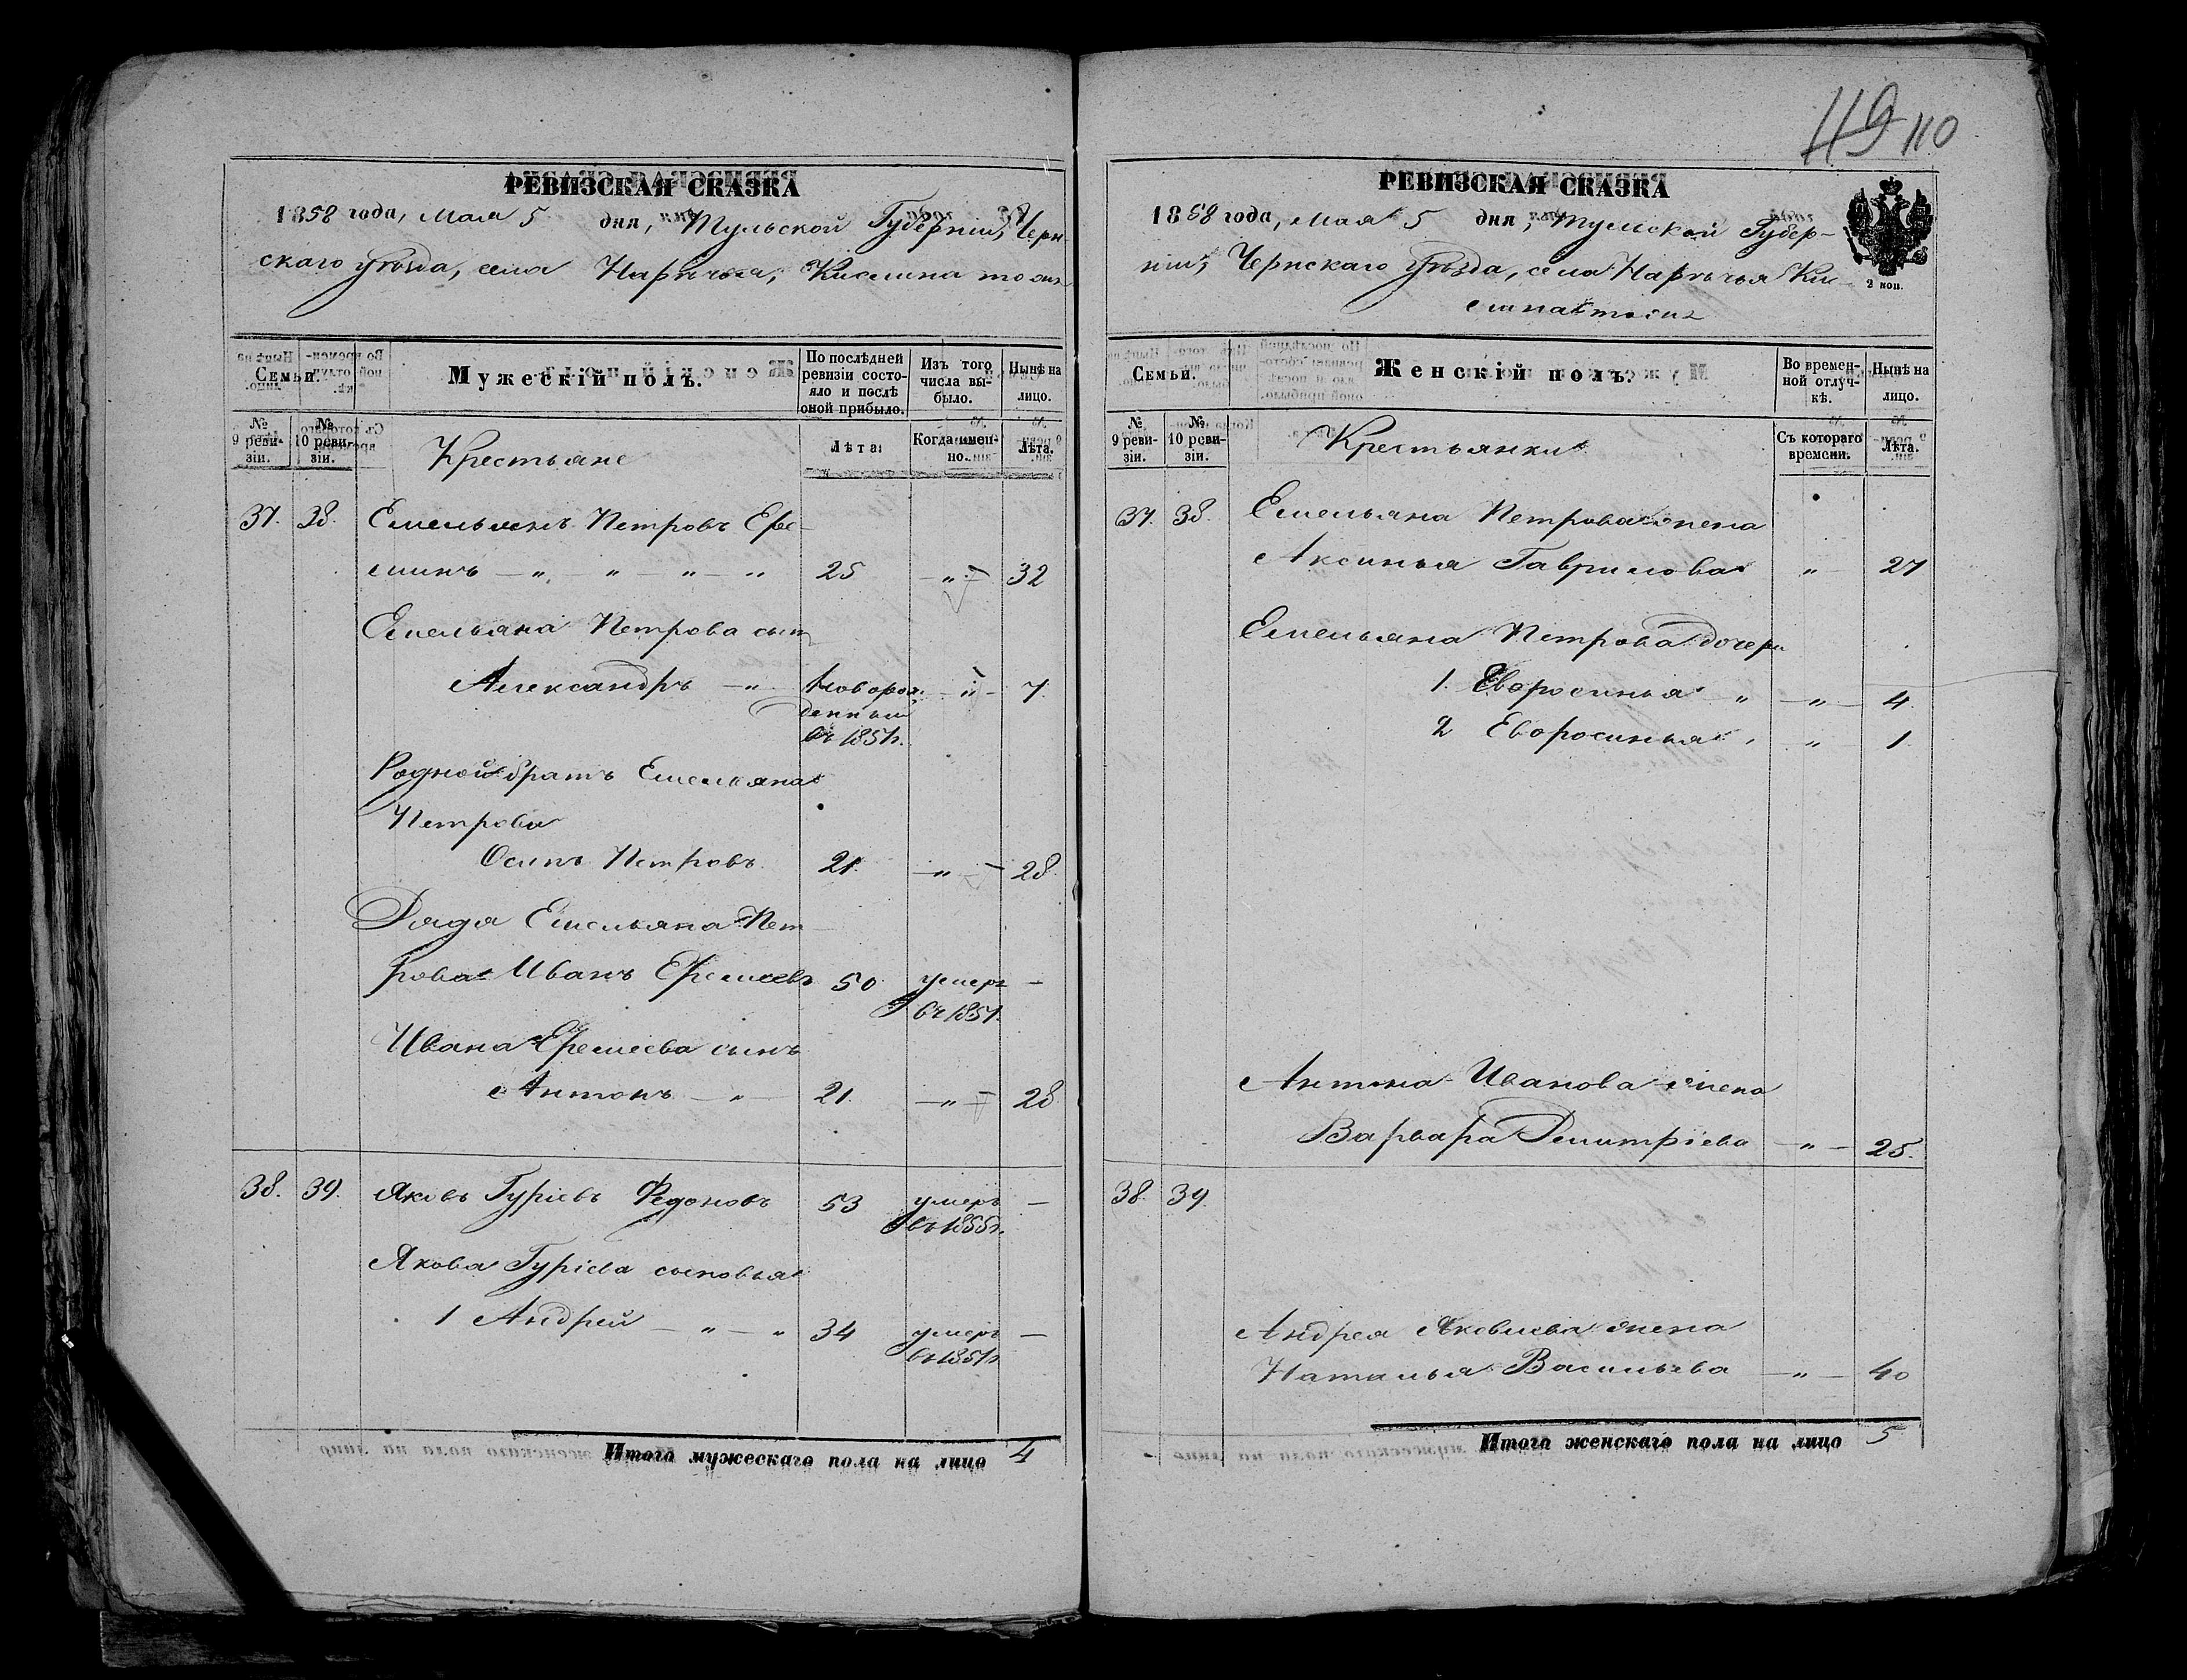 119 110
РЕВИЗСКАЯ СКАЗКА
1858 года, Мая 5 дня, Тульской Губернiи, Черн-
скаго уѣзда, села Нарѣчья, Кислина тожъ
Семьи.
Мужескiй полъ.
По послѣдней ревизiи состо-
яло и послѣ оной прибыло.
Изъ того числа вы-
было.
Нынѣ на лицо.
№ 9 реви-
зiи.
№ 10 реви-
зiи.
Крестьяне
Лѣта.
Когда имен-
но.
Лѣта.
37. 38. Емельянъ Петровъ Ере-
минъ — „ — „ — „ — „ 25 — „ — 32
Емельяна Петрова сынъ
Александръ — „ новорож-
денный
въ 1851г. — „ — 7.
Родной братъ Емельяна
Петрова
Осипъ Петровъ 21. — „ — 28.
Дядя Емельяна Пет-
рова Иванъ Еремеевъ 50 умеръ
въ 1851. —
Ивана Еремеева сынъ
Антонъ — „ — 21. — „ — 28
38. 39. Яковъ Гурiевъ Федоновъ 53 умеръ
въ 1855г. —
Якова Гурiева сыновья
1 Андрей — „ — „ 34 умеръ
въ 1851г. —
Итого мужескаго пола на лицо 4
РЕВИЗСКАЯ СКАЗКА
1858 года, Мая 5 дня, Тульской Губер-
нiи, Чернскаго уѣзда, села Нарѣчья Ки-
слина тожъ
2 коп.
Семьи.
Женскiй полъ.
Во времен-
ной отлуч-
кѣ.
Нынѣ на лицо.
№ 9 реви-
зiи.
№ 10 реви-
зiи.
Крестьянки
Съ котораго времени.
Лѣта.
37. 38. Емельяна Петрова жена
Аксинья Гаврилова „ 27
Емельяна Петрова дочери
1. Евфросинья „ — „ — 4.
2 Евфросинья „ „ 1.
Антона Иванова жена
Варвара Дмитрiева — „ — 25.
38. 39.
Андрея Яковлева жена
Наталья Васильева — „ — 40
Итого женскаго пола на лицо 5